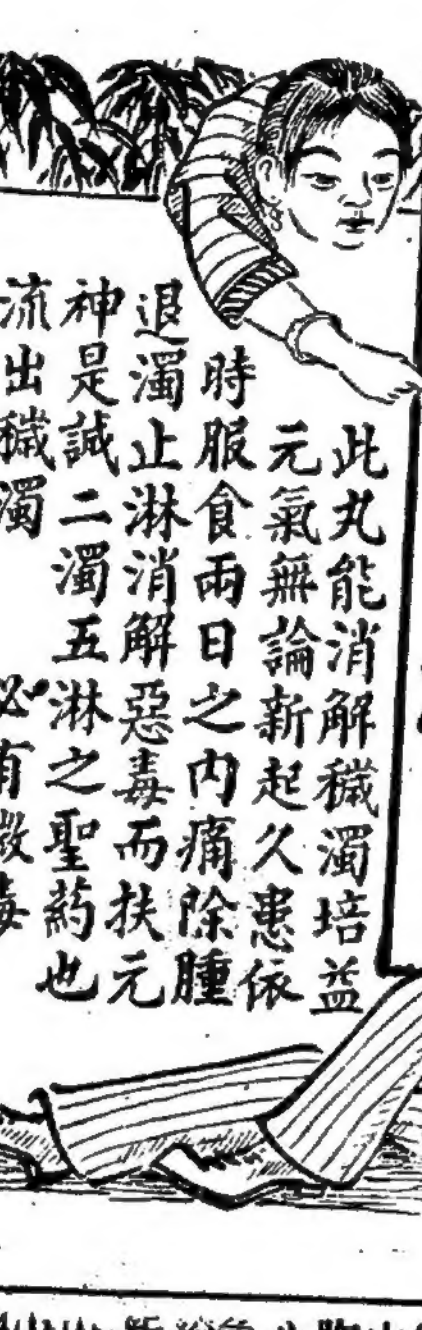 此丸能消解穢濁培益
元氣無論新起久患依
時服食兩日之內痛除腫
退濁止淋消解惡毒而扶元
神是誠二濁五淋之聖葯也
流出穢濁 必有微毒